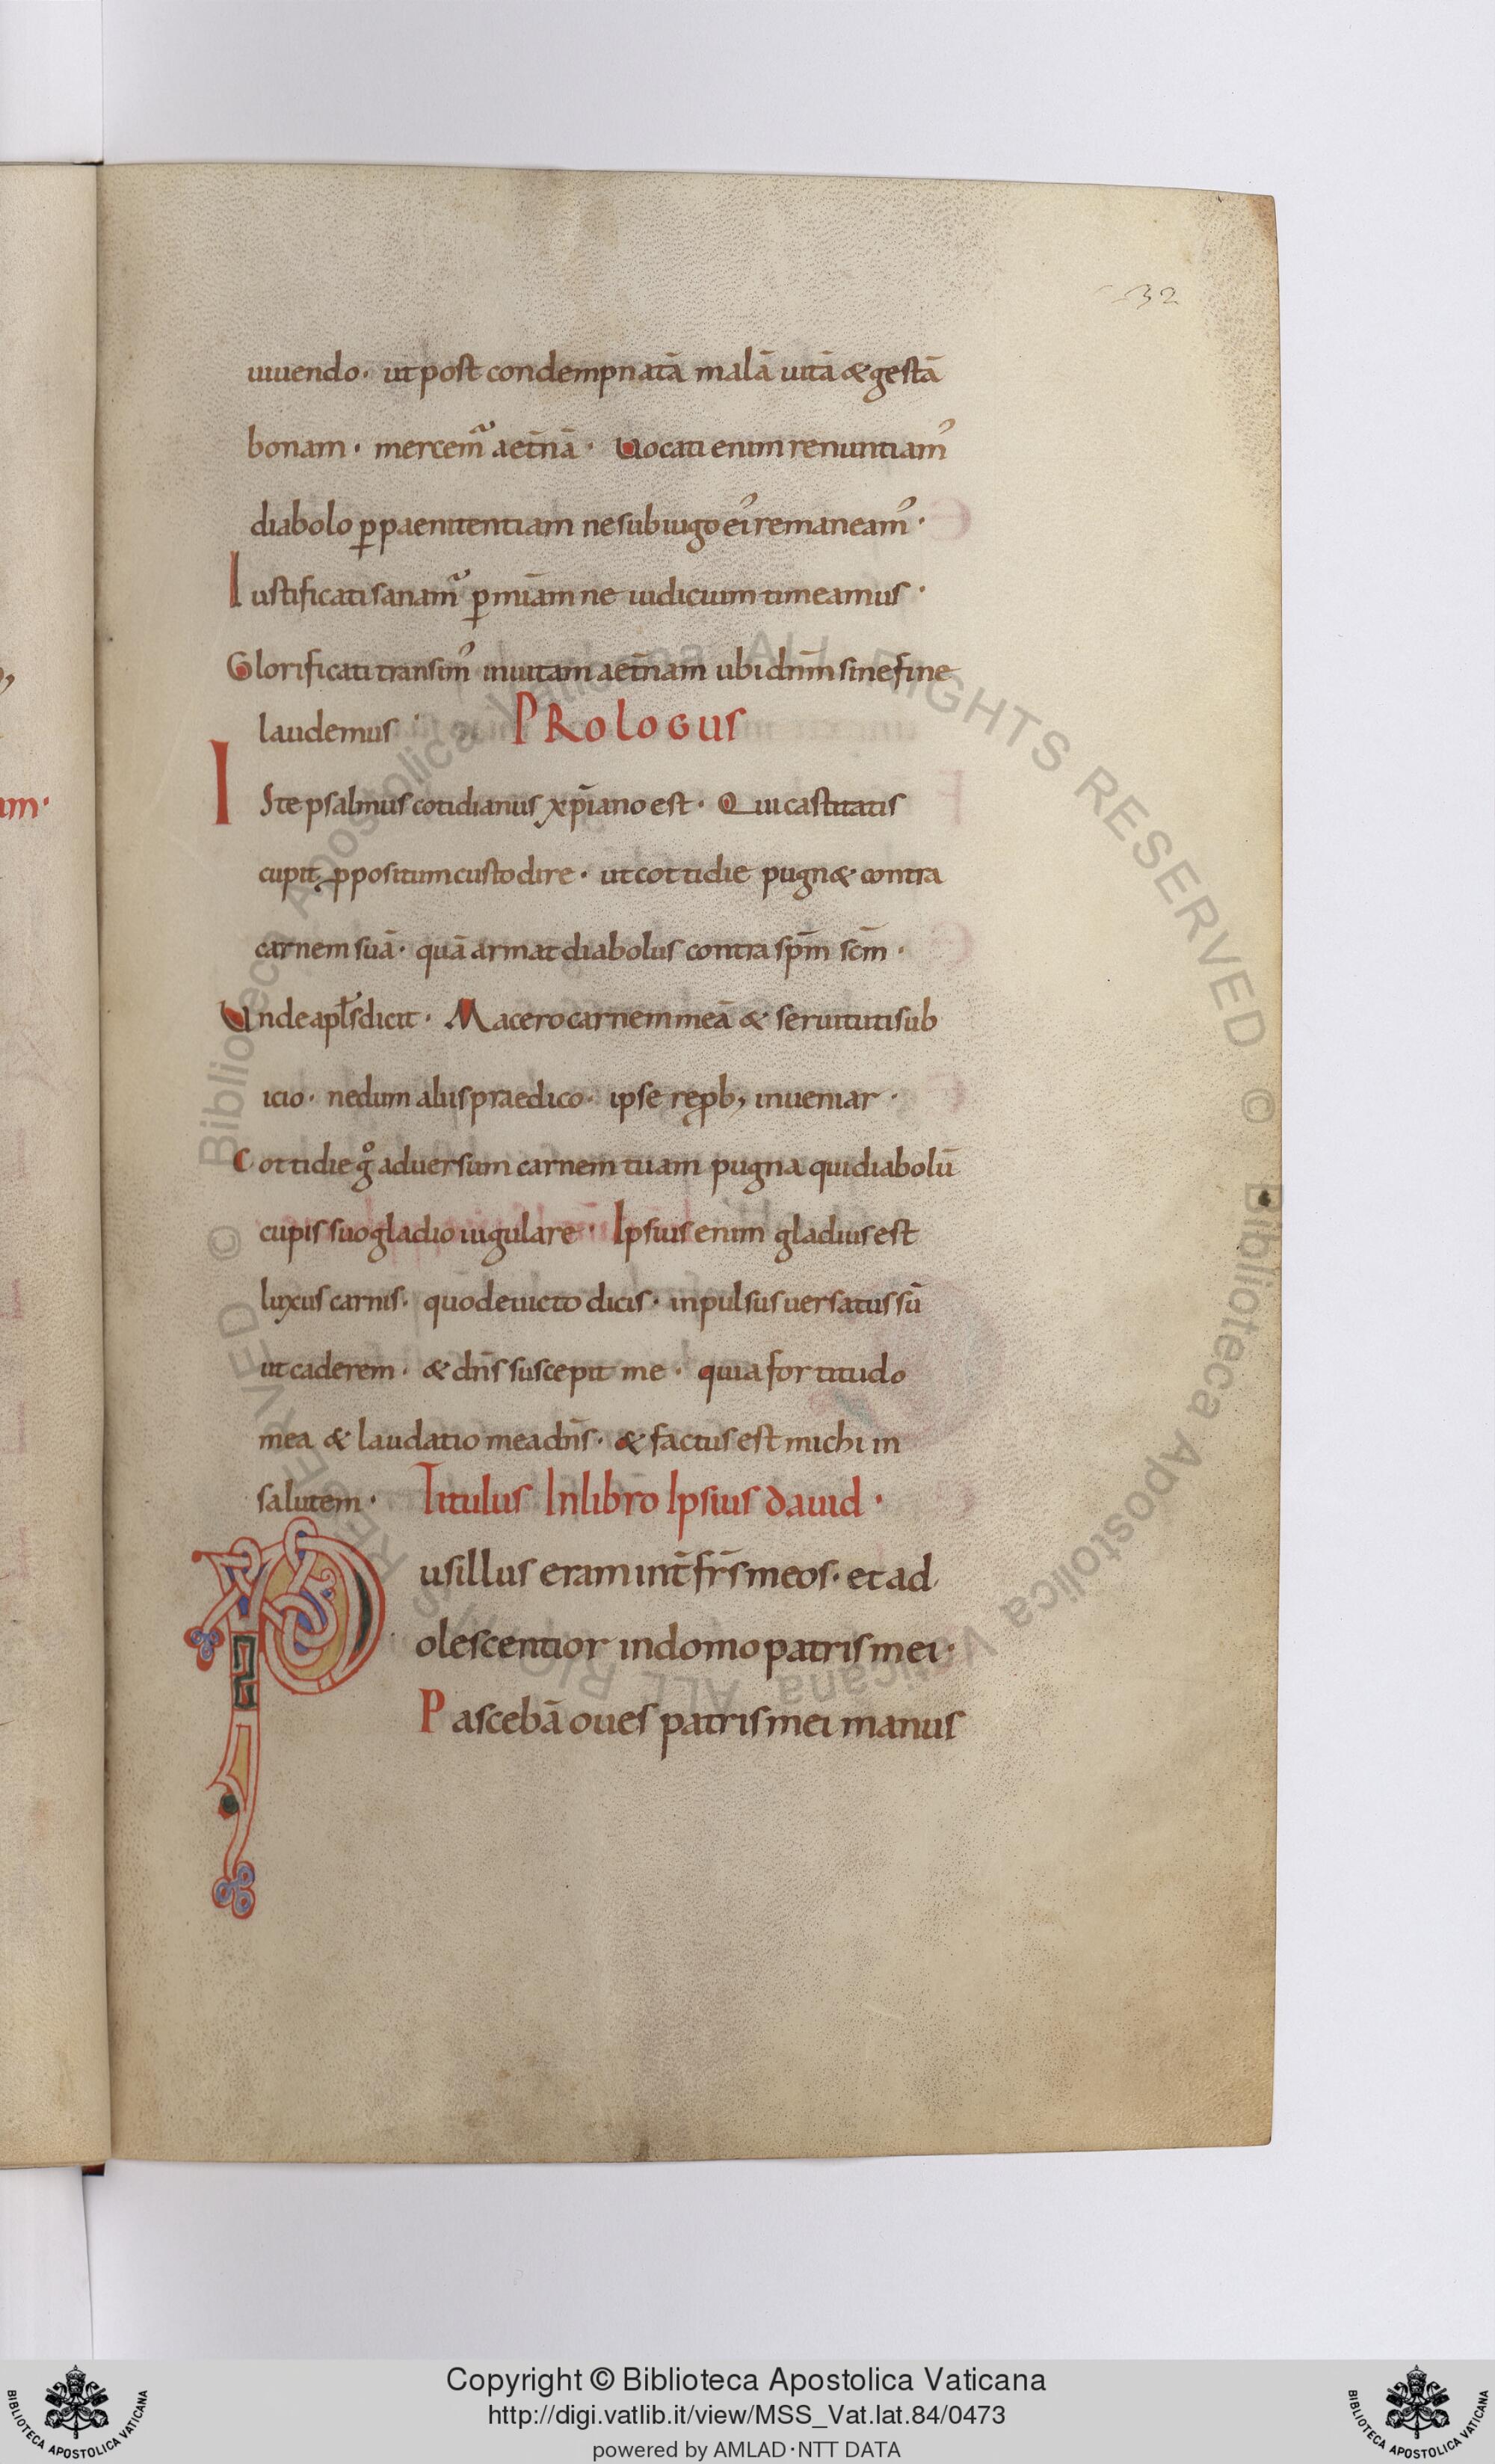 32
uiuendo· ut post condempnatā malā uitā & gestā
bonam· mercem᷑ aet̄nā· Uocati enim renuntiam᾽
diabolo ꝑ paenitentiam ne sub iugo ei᾽ remaneam᾽·
Iustificati sanam᷑ ꝑ mīam ne iudicium timeamus·
Glorificati transim᾽ in uitam aet̄nam ubi dn̄m sine fine
laudemus PRoloGus
Iste psalmus cotidianus xp̄iano est· Qui castitatis
cupit ꝓpositum custodire· ut cottidie pugn& contra
carnem suā· quā armat diabolus contra sp̄m sc̄m·
Unde apl̄s dicit· Macero carnem meā & seruituti sub
icio· ne dum aliis praedico· ipse reꝓb; inueniar·
Cottidie gͦ aduersum carnem tuam pugna qui diabolū
cupis suo gladio iugulare· Ipsius enim gladius est
luxus carnis· quo deuicto dicis· inpulsus uersatus sū
ut caderem· & dn̄s suscepit me· quia fortitudo
mea & laudatio mea dn̄s· & factus est michi in
salutem· Titulus In libro Ipsius dauid·
Pusillus eram int̄ fr̄s meos· et ad
olescentior in domo patris mei·
Pascebā oues patris mei manus
am·
Copyright © Biblioteca Apostolica Vaticana
http://digi.vatlib.it/view/MSS_Vat.lat.84/0473
powered by AMLAD·NTT DATA
BIBLIOTECA APOSTOLICA VATICANA
BIBLIOTECA APOSTOLICA VATICANA
© Biblioteca Apostolica Vaticana ALL RIGHTS RESERVED
© Biblioteca Apostolica Vaticana ALL RIGHTS RESERVED